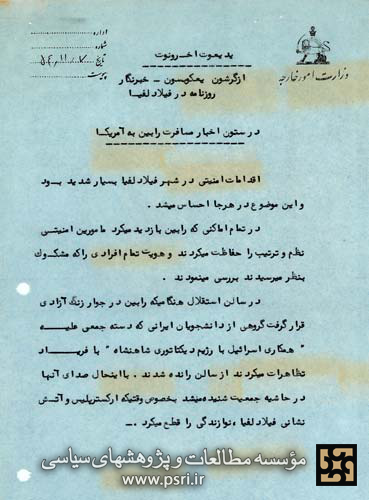 اداره
شماره
تاریخ ۵۴،۱۱،۷
پیوست
وزارت امور خارجه
یدیعوت آخرونوت
ازگرشون یعکوبسون - خبرنگار
روزنامه در فیلادلفیا
درستون اخبار مسافرت رابین به آمریکا
اقدامات امنیتی در شهر فیلادلفیا بسیار شدید بود
و این موضوع در هرجا احساس میشد .
در تمام اماکنی که رابین بازدید میکرد مامورین امنیتی
نظم و ترتیب را حفاظت میکردند و هویت تمام افرادی را که مشکوک
بنظر میرسیدند بررسی مینمودند
در سالن استقلال هنگامیکه رابین در جوار زنگ آزادی
قرار گرفت گروهی از دانشجویان ایرانی که دسته جمعی علیه
" همکاری اسرائیل با رژیم دیکتاتوری شاهنشاه " با فریاد
تظاهرات میکردند از سالن رانده شدند . با اینحال صدای آنها
در حاشیه جمعیت شنیده میشد بخصوص وقتیکه ارکستر پلیس و آتش
نشانی فیلادلفیا ، نوازندگی را قطع میکرد .--
مؤسسه مطالعات و پژوهشهای سیاسی
www.psri.ir